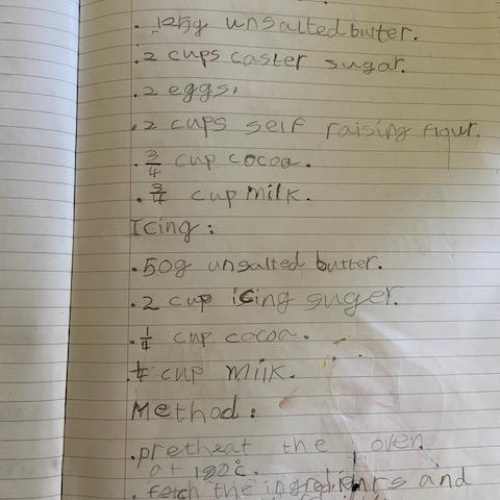 . 125g unsalted butter.
.2 cups caster sugar.
.2 eggs.
.2 cups self raising flour.
.3/4 cup cocoa.
.3/4 cup milk.
Icing:
.50g unsalted butter.
.2 cup icing suger.
.1/4 cup cocoa.
cup milk.
Method:
.pretheat the oven
at 180°c.
. fetch the and